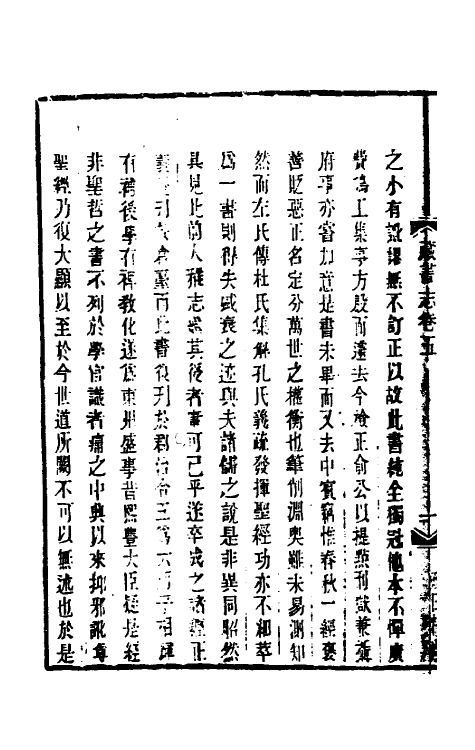 之小有訛謬無不訂正以故此書純全獨冠他本不憚廣
費鳩工集事方殷而遷去今檢正俞公以提㸃刑獄兼攝
府事亦嘗加意是書未畢而又去中賓竊惟春秋一經褒
善貶惡正名定分萬世之權衡也筆削淵奧雖未易測知
然而左氏傳杜氏集解孔氏義疏發揮聖經功亦不細萃
爲一書則得失盛衰之迹與夫諸儒之說是非異同昭然
具見此前人雅志繼其後者庸可已乎遂卒成之諸經正
義既刊於倉臺而此書復刊於郡治合五爲六炳乎相輝
有補後學有裨教化遂爲東州盛事昔熙豐大臣疑是經
非聖哲之書不列於學官識者痛之中興以來抑邪說尊
聖經乃復大顯以至於今世道所關不可以無述也於是
藏書志卷五